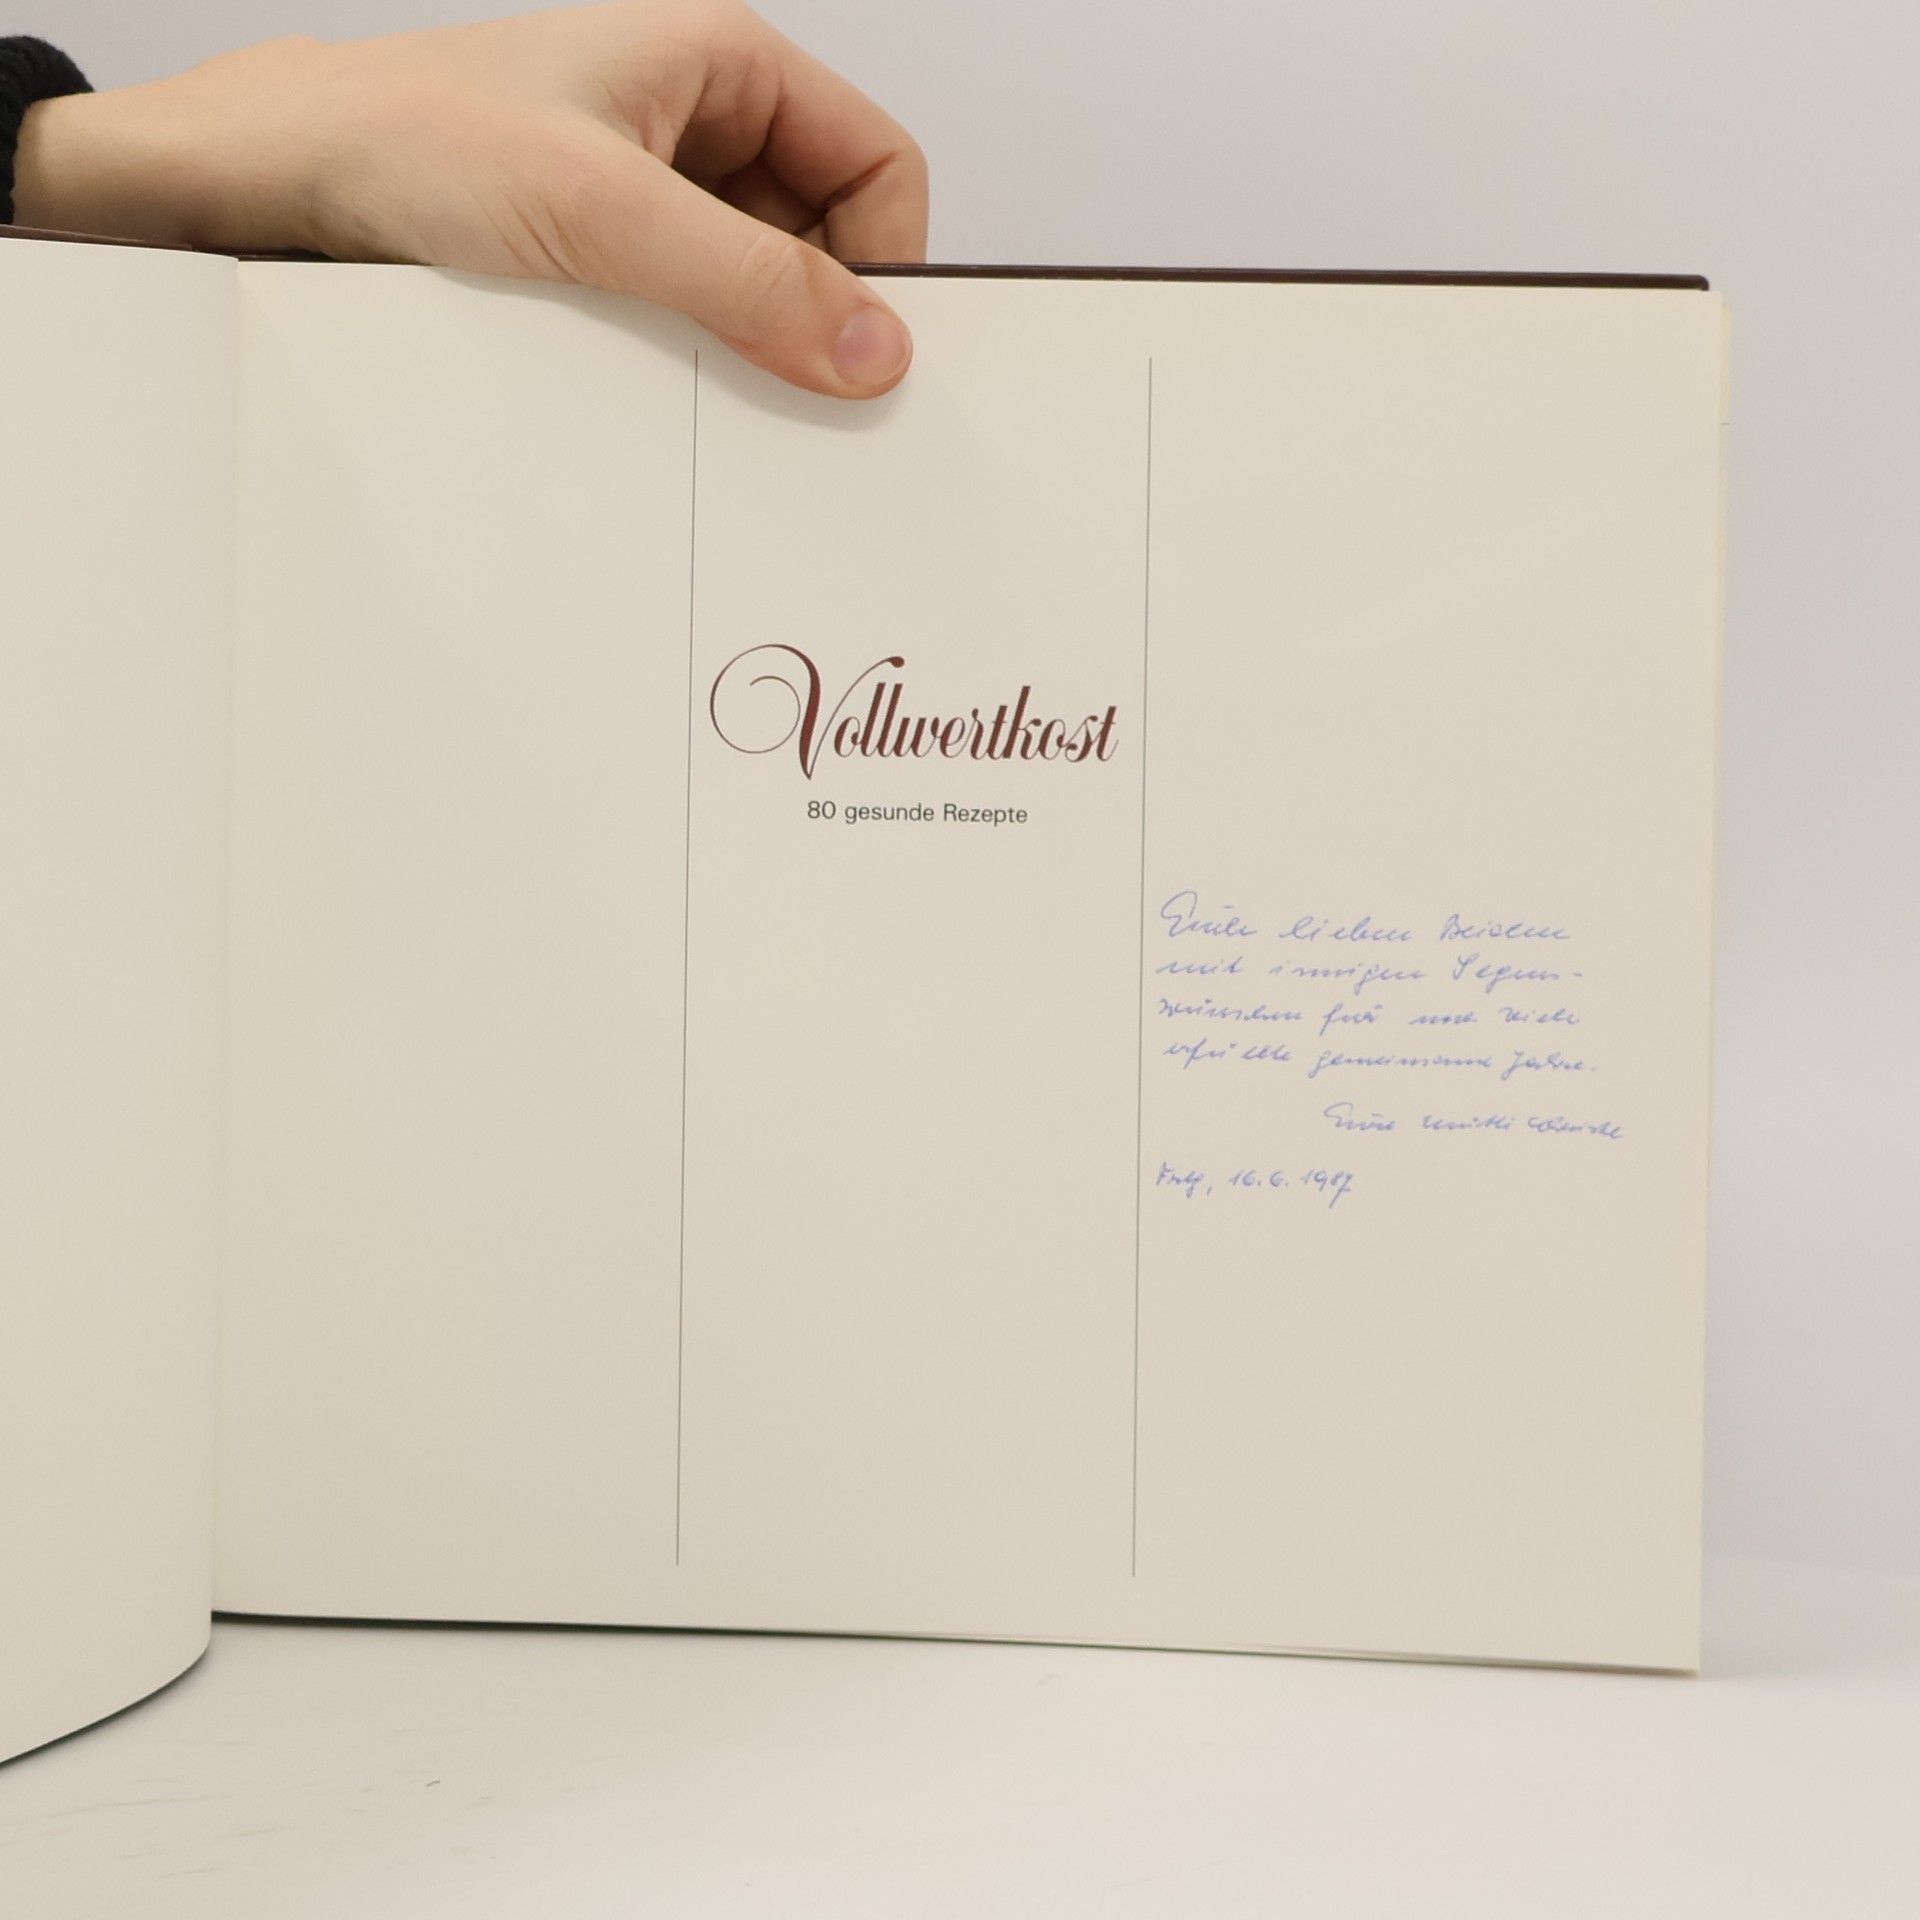 Vollwertkost
80 gesunde Rezepte
lieben Beiden
mit innigen Segens-
wünschen für viele
erfüllte gemeinsame Jahre.
Eure
16.6.1987